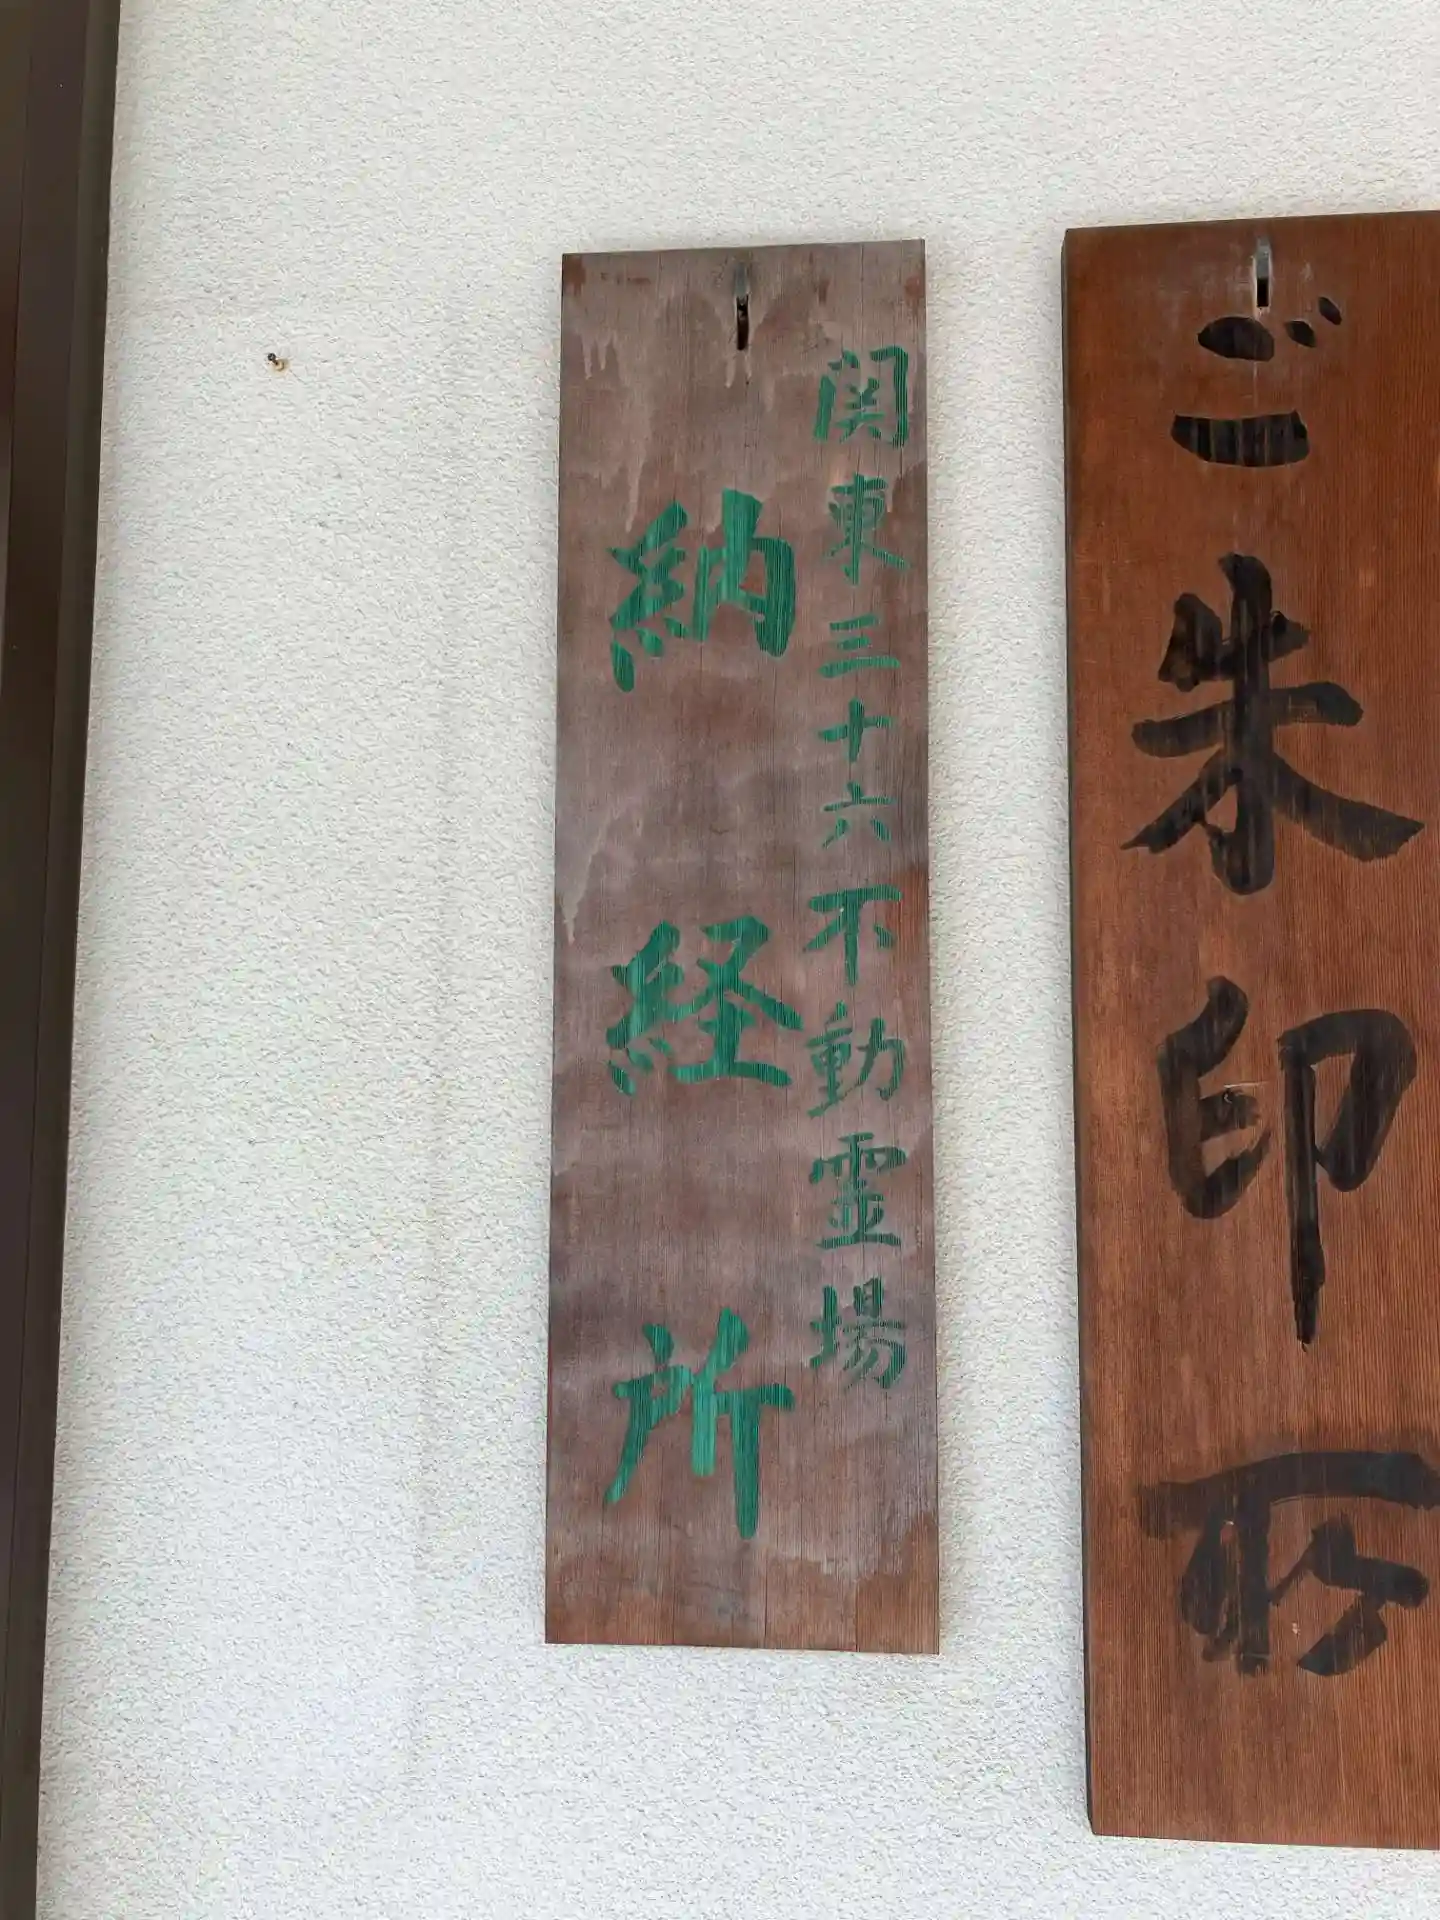 ご朱印所
関東三十六不動霊場
納経所